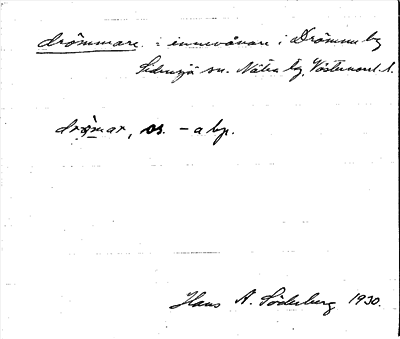 drömmare : innevånare i Drömme by
Sidensjö sn. Nätra tg, Västernorrl. l.
dròmar, os. – a bp.
Hans A. Söderberg 1930.